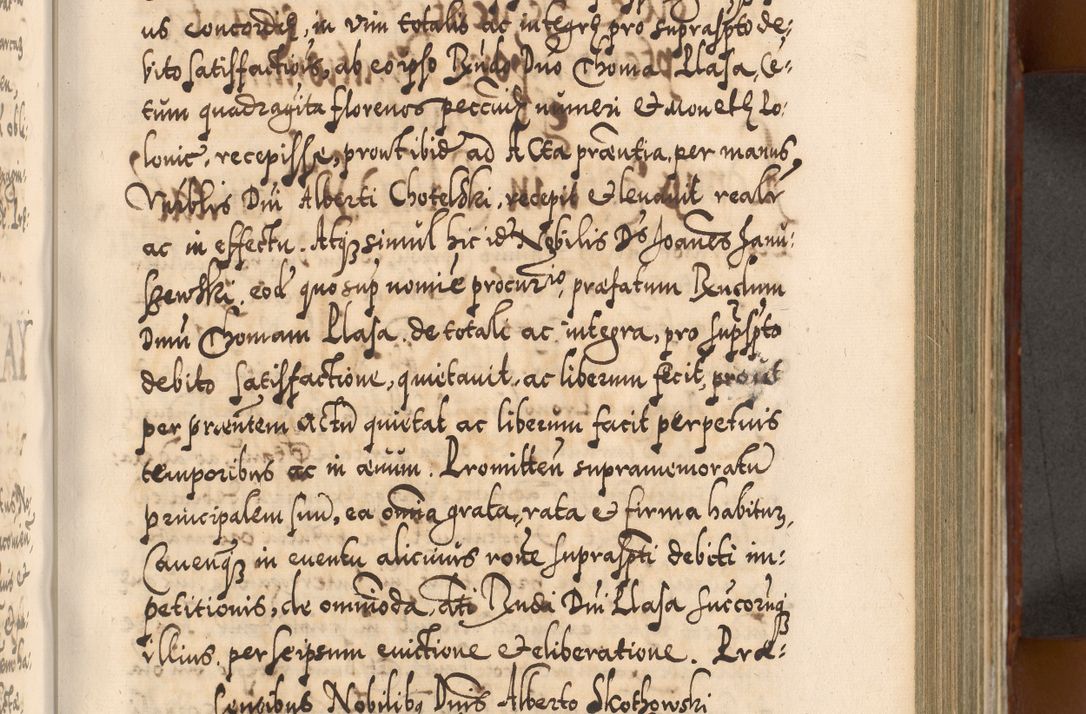 us concordiꝫ, in vim totalis ac integrꝫ pro supraspto de-
bito satisfactiois, ab eo ipso Rndo Dno Thoma Plasa, Ce-
tum quadragita florenos peccuiꝫ numeri et monetꝫ Po-
lonic, recepisse, prout ibid ad Acta præntia, per manus
Nobilis Dni Alberti Chotelski, recepit et levavit realr
ac in effectu. Atqꝫ simul hic id Nobilis Ds Joanes Janu-
szewski, eod quo sup nomie procurrio, præfatum Rndum
Dnu Thomam Plasa, de totali ac integra, pro supspto
debito satisfactione, quietavit, ac liberum fecit, prout
per præntem Actu quietat ac liberum facit perpetuis
temporibus ac in ævum. Promitten supramemoratu
principalem suu, ea omnia grata, rata et firma habitur,
Cavenqꝫ in eventu alicuius rone supraspti debiti im-
petitionis, de omnioda, ati Rndi Dni Plasa succorumqꝫ
illius, per seipsum evictione et eliberatione. Præ-
sentibus Nobilibꝫ Dnis Alberto Skothowski